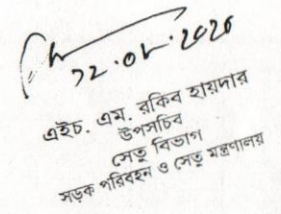 ১২.০৮.২০২৫
এইচ. এম. রকিব হায়দার
উপসচিব
সেতু বিভাগ
সড়ক পরিবহন ও সেতু মন্ত্রণালয়